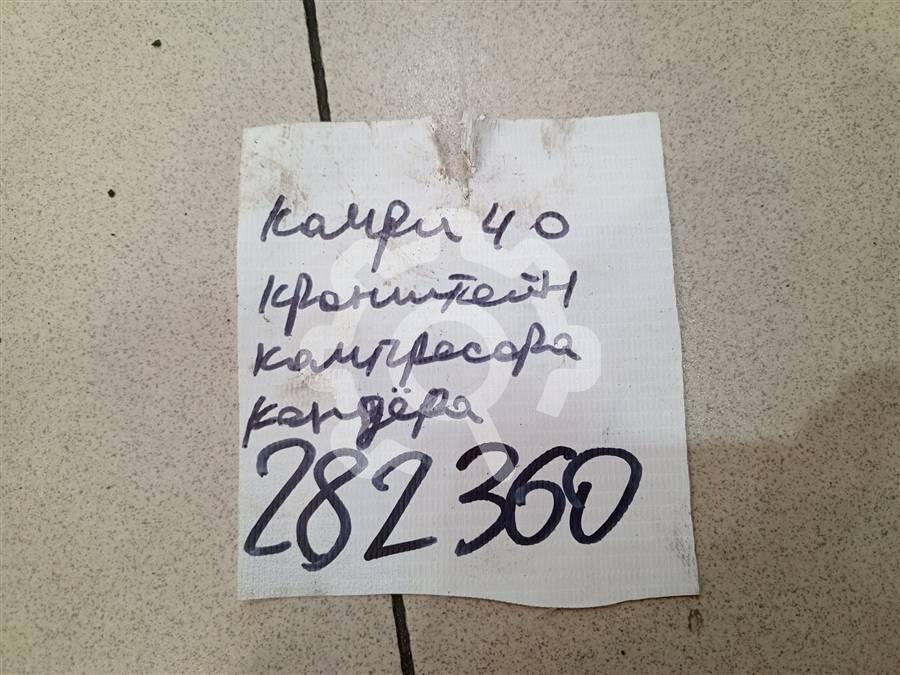 Камри 40
Кронштейн
кампресора
кандёра
282360